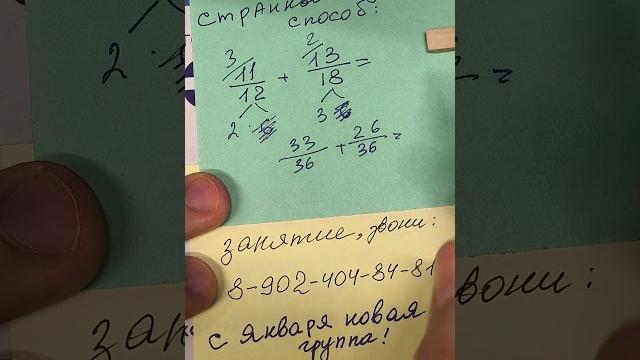 способ:
3/ 11/12 + 2/ 13/18 =
2 · 3
33/36 + 26/36 =
занятие, звони:
8-902-404-84-81
с января новая
группа!